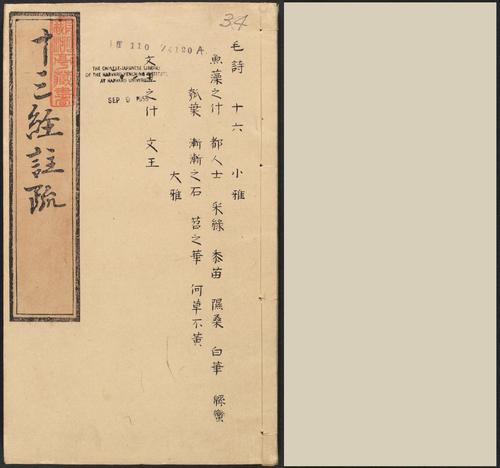 34
毛詩 十六 小雅
魚藻之什 都人士 采綠 黍苗 隰桑 白華 緜蠻
瓠葉 漸漸之石 苕之華 何草不黃
大雅
文王之什 文王
THE CHINESE-JAPANESE LIBRARY
OF THE HARVARD-YENCHING INSTITUTE
AT HARVARD UNIVERSITY
SEP
十三經註疏